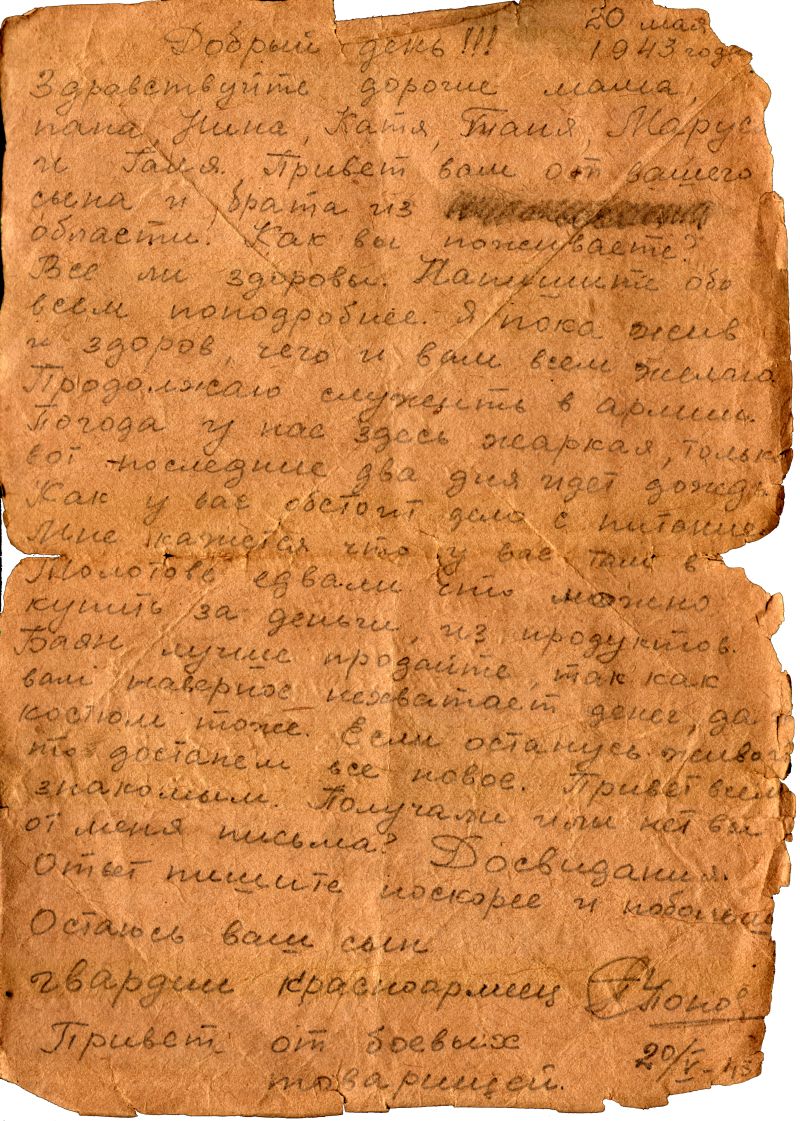 20 мая
1943 года
Добрый день!!!
Здравствуйте дорогие мама,
папа, Нина, Катя, Таня, Маруся
и Галя. Привет вам от вашего
сына и брата из
области. Как вы поживаете?
Все ли здоровы. Напишите обо
всем поподробнее. Я пока жив
и здоров, чего и вам всем желаю
Продолжаю служить в армии.
Погода у нас здесь жаркая, только
вот последние два дня идет дождь
Как у вас обстоит дело с питание
Мне кажется что у вас там в
Молотове едвали что можно
купить за деньги, из продуктов.
Баян лучше продайте, так как
вам наверное нехватает денег, да
костюм тоже. Если останусь живой
то достанем все новое. Привет всем
знакомым. Получали или нет вы
от меня письма? Досвидания.
Ответ пишите поскорее и побольше
Остаюсь ваш сын
гвардии красноармеец Попов
Привет от боевых
товарищей.
20/V-43